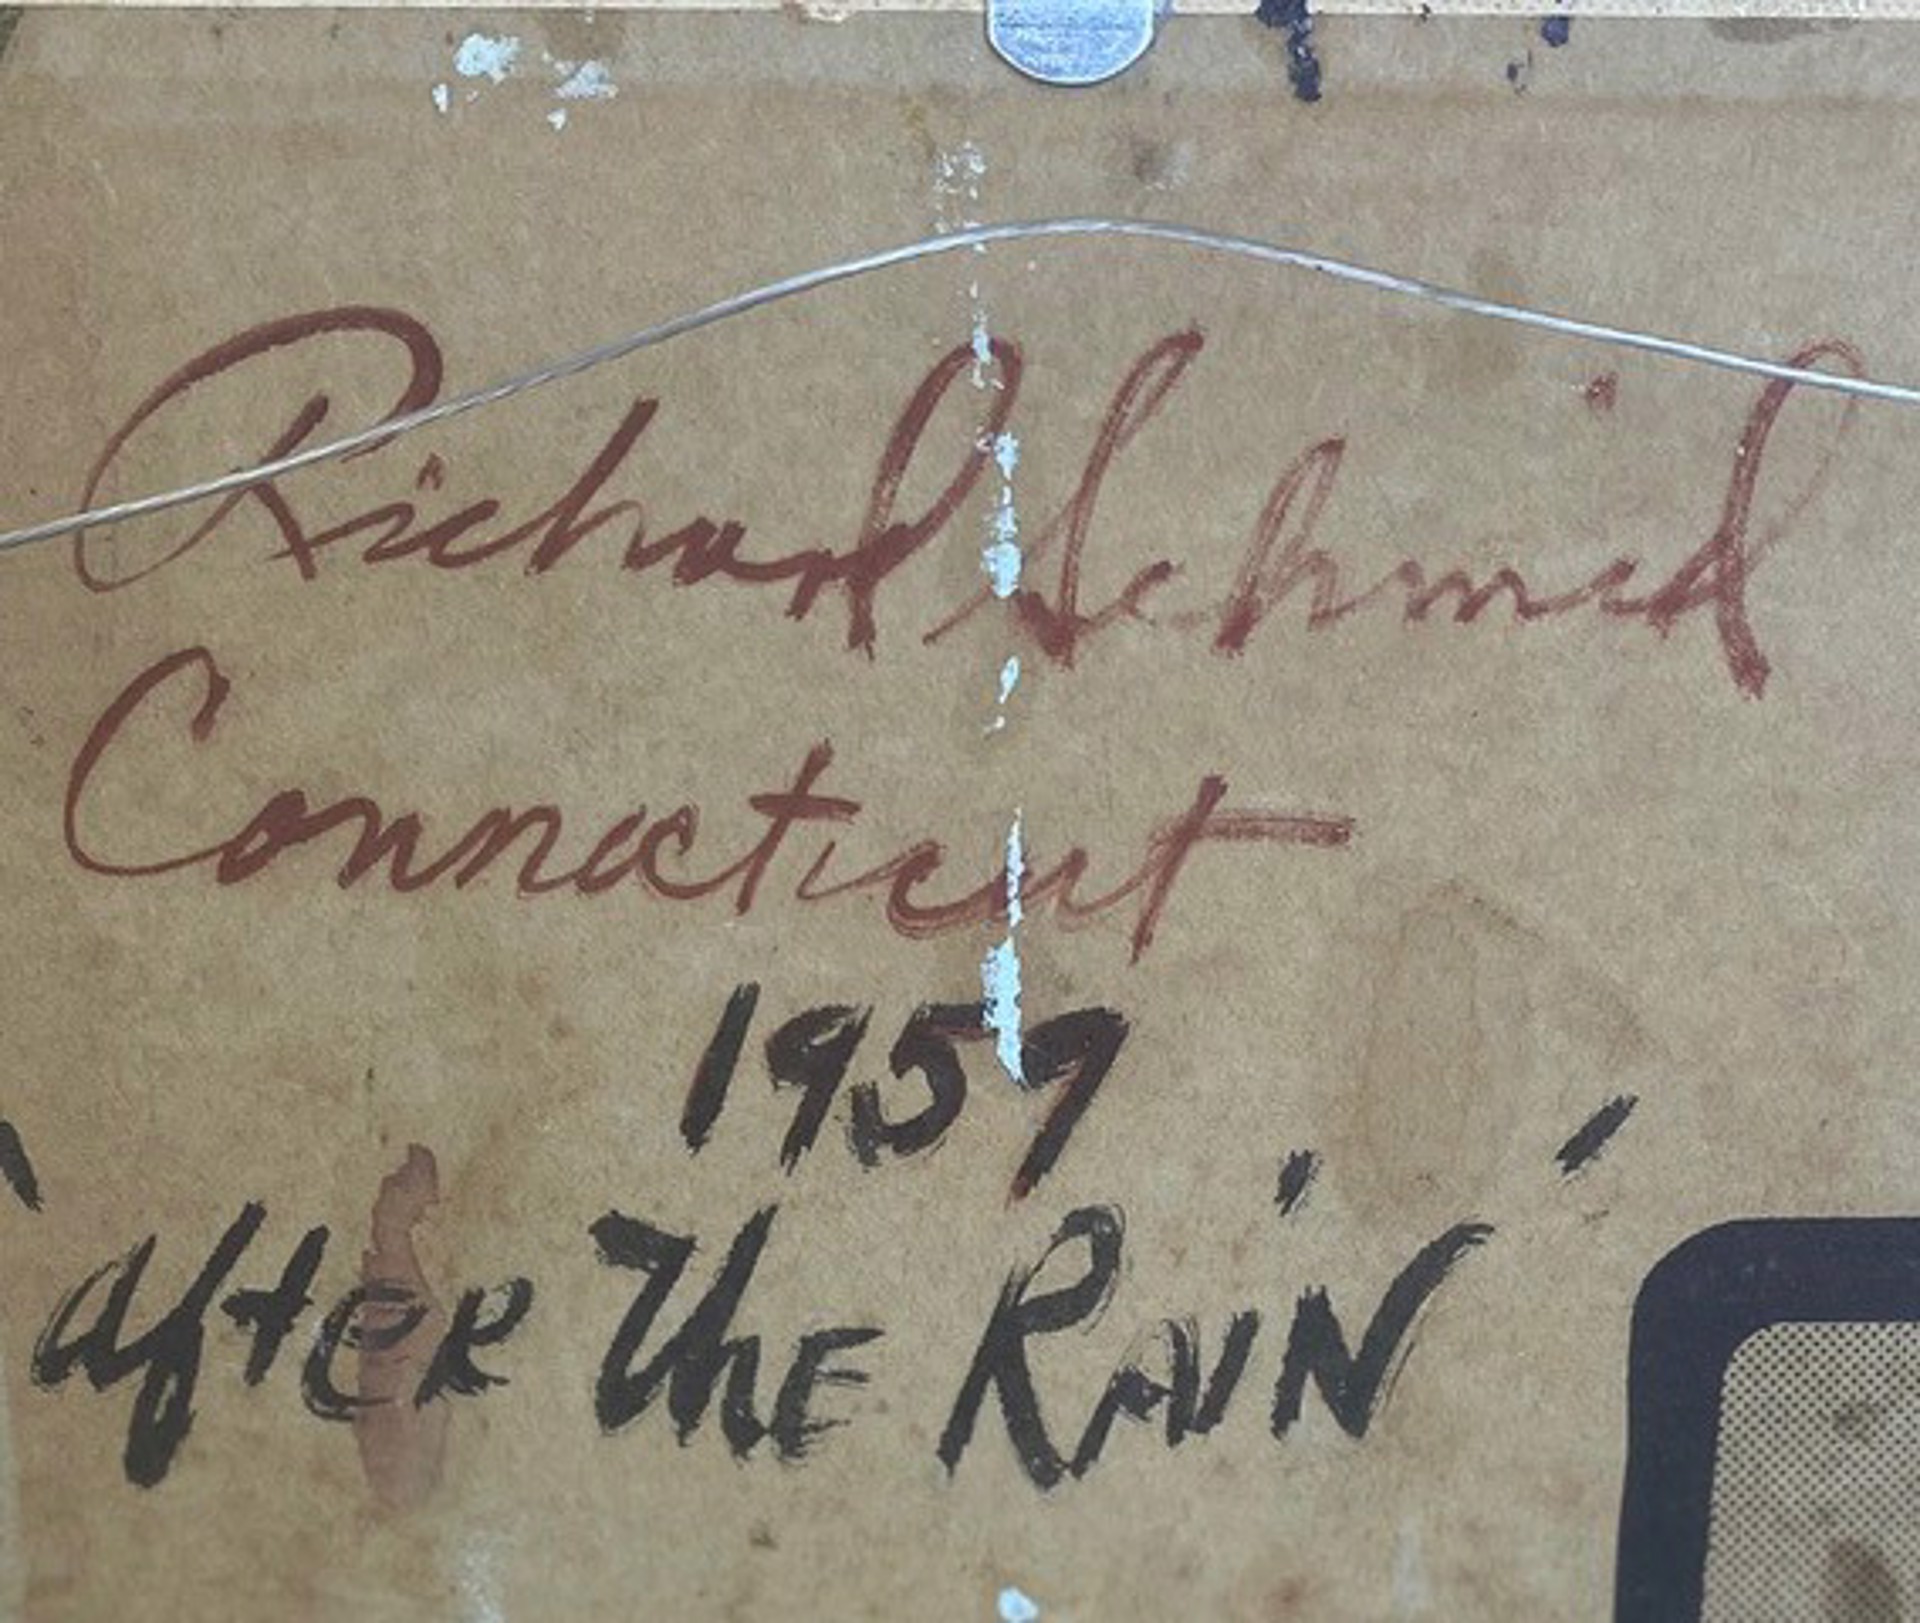 Richard Schmid
Connecticut
1959
"after The RAiN"